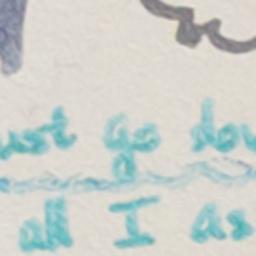 ust go dow
all I as